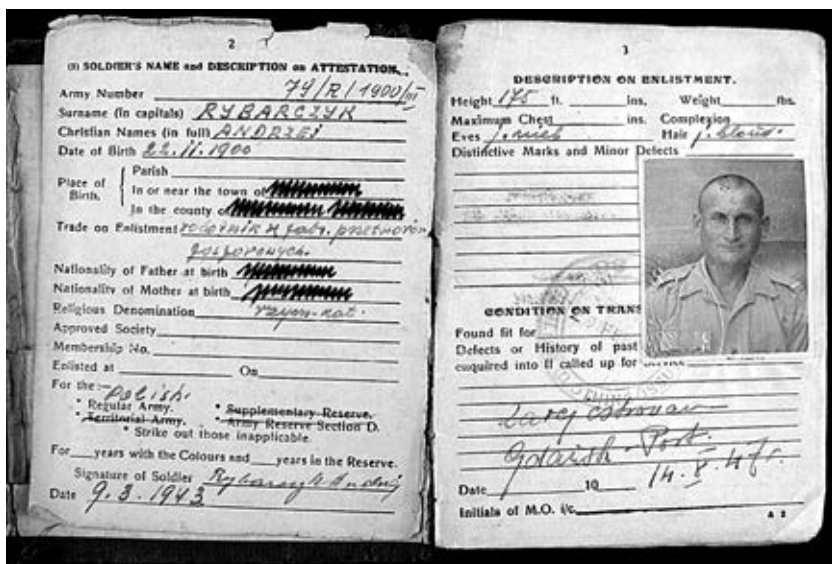 2
(1) SOLDIER'S NAME and DESCRIPTION on ATTESTATION.
Army Number 79/R/1900/III
Surname (in capitals) RYBARCZYK
Christian Names (in full) ANDRZEJ
Date of Birth 22.11.1900
Place of Birth.
Parish
In or near the town of
In the county of
Trade on Enlistment robotnik w fabr. przetworów
fosforowych.
Nationality of Father at birth
Nationality of Mother at birth
Religious Denomination rzym-kat.
Approved Society
Membership No.
Enlisted at On
For the :— Polish.
* Regular Army. * Supplementary Reserve.
* Territorial Army. * Army Reserve Section D.
* Strike out those inapplicable.
For years with the Colours and years in the Reserve.
Signature of Soldier Rybarczyk Andrzej
Date 9.3.1943
3
DESCRIPTION ON ENLISTMENT.
Height 175 ft. ins. Weight lbs.
Maximum Chest ins. Complexion
Eyes j. nieb Hair j. blond.
Distinctive Marks and Minor Defects
CONDITION ON TRANS
Found fit for
Defects or History of past
enquired into if called up for Service
Gdańsk - Port.
14. V. 47 r.
Date 19
Initials of M.O. i/c.
A 2